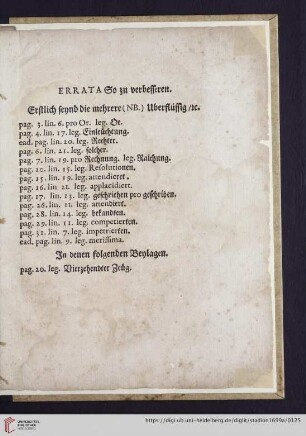 ERRATA So zu verbesseren.
Erstlich seynd die mehrere (NB.) Uberflüssig /ꝛc.
pag. 3. lin. 6. pro Or. leg. Ot.
pag. 4. lin. 17. leg. Einleüchtung.
ead. pag. lin. 20. leg. Rechter.
pag. 6. lin. 21. leg. solcher.
pag. 7. lin. 19. pro Rechnung. leg. Raichung.
pag. 10. lin. 15. leg. Resolutionen.
pag. 15. lin. 19. leg. attendieret.
pag. 16. lin 21. leg. applacidiert.
pag. 17. lin. 13. leg. geschriehen pro geschriben.
pag. 26. lin. 11. leg. attendiert.
pag. 28. lin. 14. leg. bekandten.
pag. 29. lin. 11. leg. competierten.
pag. 31. lin. 7. leg. impetrierten.
ead. pag. lin. 9. leg. meritissima.
In denen folgenden Beylagen.
pag. 20. leg. Vierzehendter Zeüg.
UNIVERSITÄTS-
BIBLIOTHEK
HEIDELBERG
https://digi.ub.uni-heidelberg.de/diglit/stadion1699a/0125